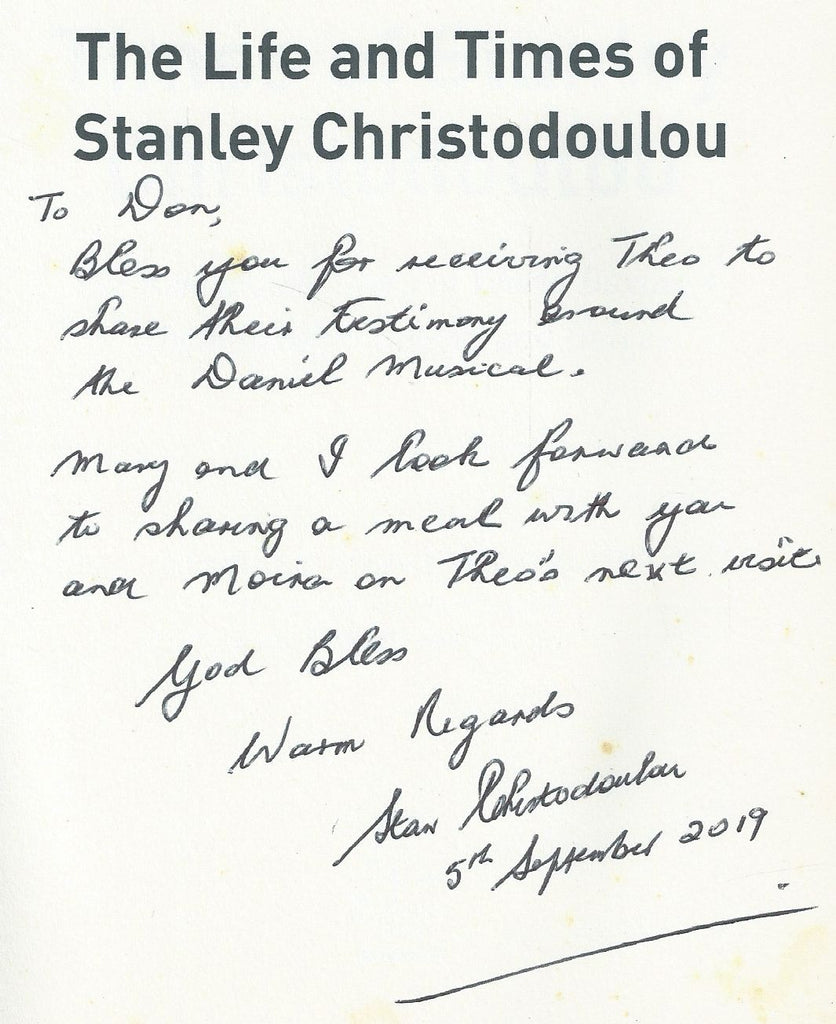 The Life and Times of
Stanley Christodoulou
To Don,
Bless you for receiving Theo to
share their testimony around
the Daniel Musical.
Mary and I look forward
to sharing a meal with you
and Moira on Theo's next visit.
God Bless
Warm Regards
Stan Christodoulou
5th September 2019